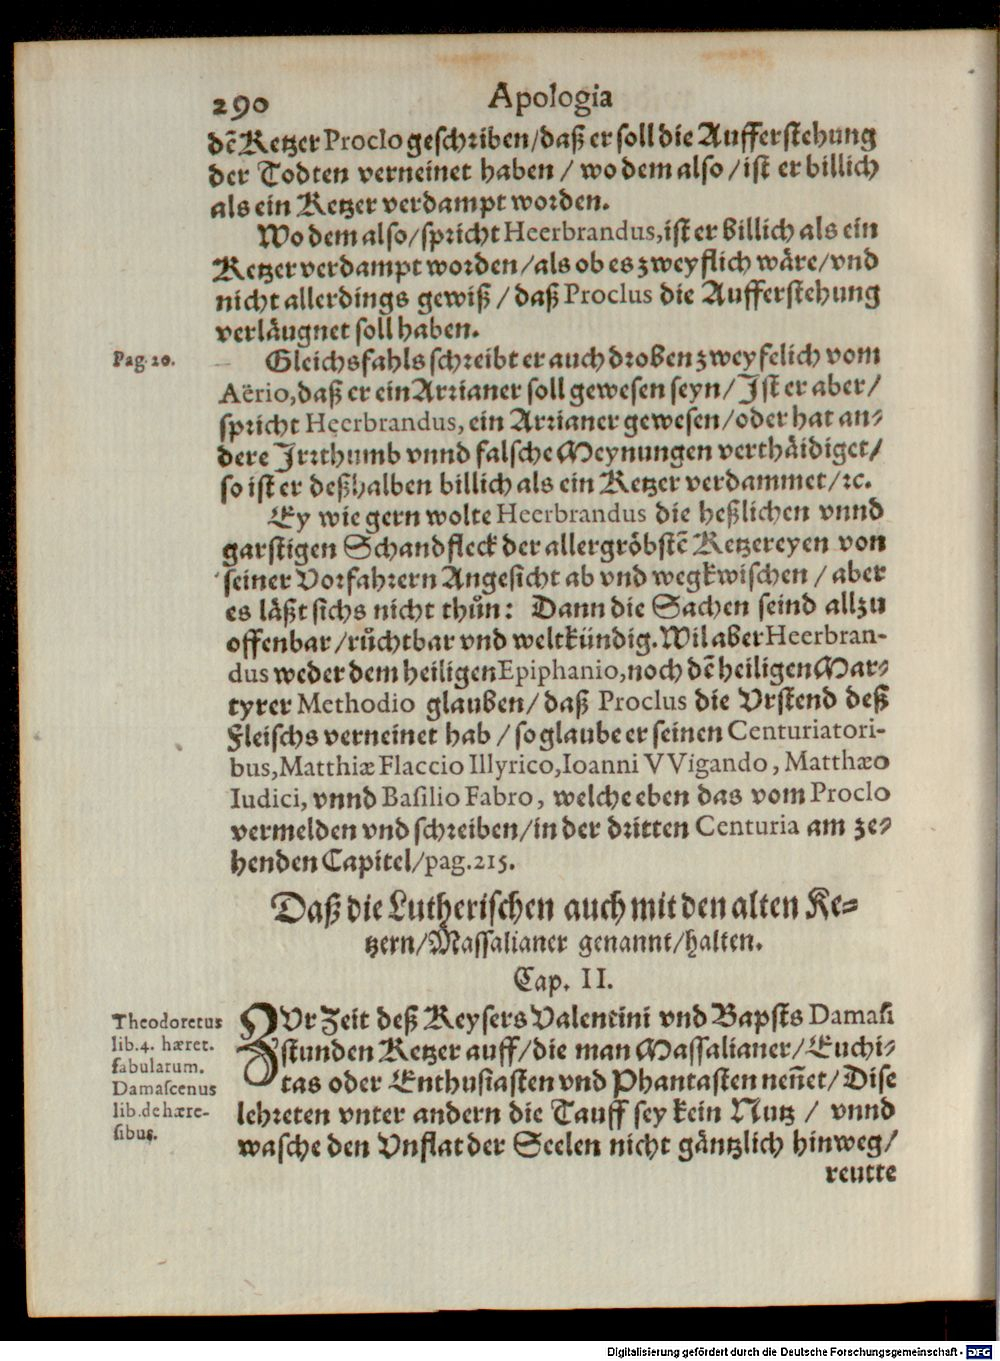 290 Apologia
dē Ketzer Proclo geschriben/daß er soll die Aufferstehung
der Todten verneinet haben / wo dem also / ist er billich
als ein Ketzer verdampt worden.
Wo dem also/spricht Heerbrandus, ist er billich als ein
Ketzer verdampt worden/als ob es zweyflich wäre/vnd
nicht allerdings gewiß / daß Proclus die Aufferstehung
verläugnet soll haben.
Pag. 20.
Gleichsfahls schreibt er auch droben zweyfelich vom
Aërio, daß er ein Arrianer soll gewesen seyn/ Ist er aber/
spricht Heerbrandus, ein Arrianer gewesen/oder hat an-
dere Irrthumb vnnd falsche Meynungen verthäidiget/
so ist er deßhalben billich als ein Ketzer verdammet/ꝛc.
Ey wie gern wolte Heerbrandus die heßlichen vnnd
garstigen Schandfleck der allergröbstē Ketzereyen von
seiner Vorfahrern Angesicht ab vnd wegkwischen / aber
es läßt sichs nicht thůn: Dann die Sachen seind allzu
offenbar/růchtbar vnd weltkündig. Wil aber Heerbran-
dus weder dem heiligen Epiphanio, noch dē heiligen Mar-
tyrer Methodio glauben/ daß Proclus die Vrstend deß
Fleischs verneinet hab / so glaube er seinen Centuriatori-
bus, Matthiæ Flaccio Illyrico, Ioanni VVigando, Matthæo
Iudici, vnnd Basilio Fabro, welche eben das vom Proclo
vermelden vnd schreiben/in der dritten Centuria am ze-
henden Capitel/pag. 215.
Daß die Lutherischen auch mit den alten Ke-
tzern/Massalianer genannt/halten.
Cap. II.
Theodoretus
lib. 4. hæret.
fabularum.
Damascenus
lib. de hære-
sibus.
ZVr Zeit deß Keysers Valentini vnd Bapsts Damasi
stunden Ketzer auff/die man Massalianer/Euchi-
tas oder Enthusiasten vnd Phantasten nen̄et/ Dise
lehreten vnter andern die Tauff sey kein Nutz / vnnd
wasche den Vnflat der Seelen nicht gäntzlich hinweg/
reutte
Digitalisierung gefördert durch die Deutsche Forschungsgemeinschaft - DFG